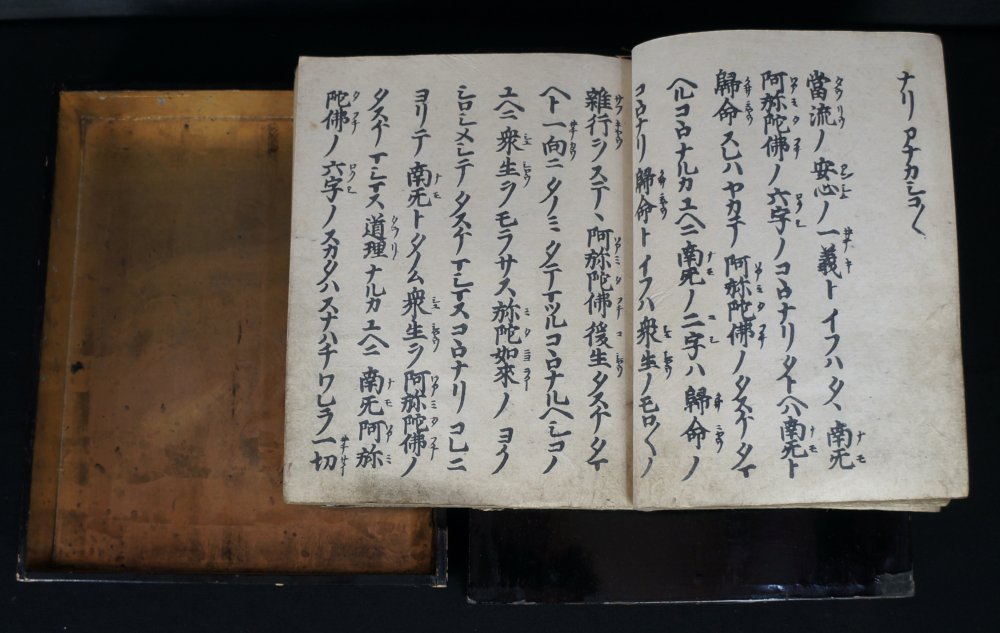 ナリアナカシコ〱
當流ノ安心ノ一義トイフハタヽ南无
阿弥陀佛ノ六字ノコヽロナリタトヘハ南无ト
歸命スレハヤカテ阿弥陀佛ノタスケタマ
ヘルコヽロナルカユヘニ南无ノ二字ハ歸命ノ
コヽロナリ歸命トイフハ衆生ノモロ〱ノ
雜行ヲステヽ阿弥陀佛後生タスケタマ
ヘト一向ニタノミタテマツルコヽロナルヘシコノ
ユヘニ衆生ヲモラサス弥陀如來ノヨク
シロシメシテタスケマシマスコヽロナリコレニ
ヨリテ南无トタノム衆生ヲ阿弥陀佛ノ
タスケマシマス道理ナルカユヘニ南无阿弥
陀佛ノ六字ノスカタハスナハチワレラ一切